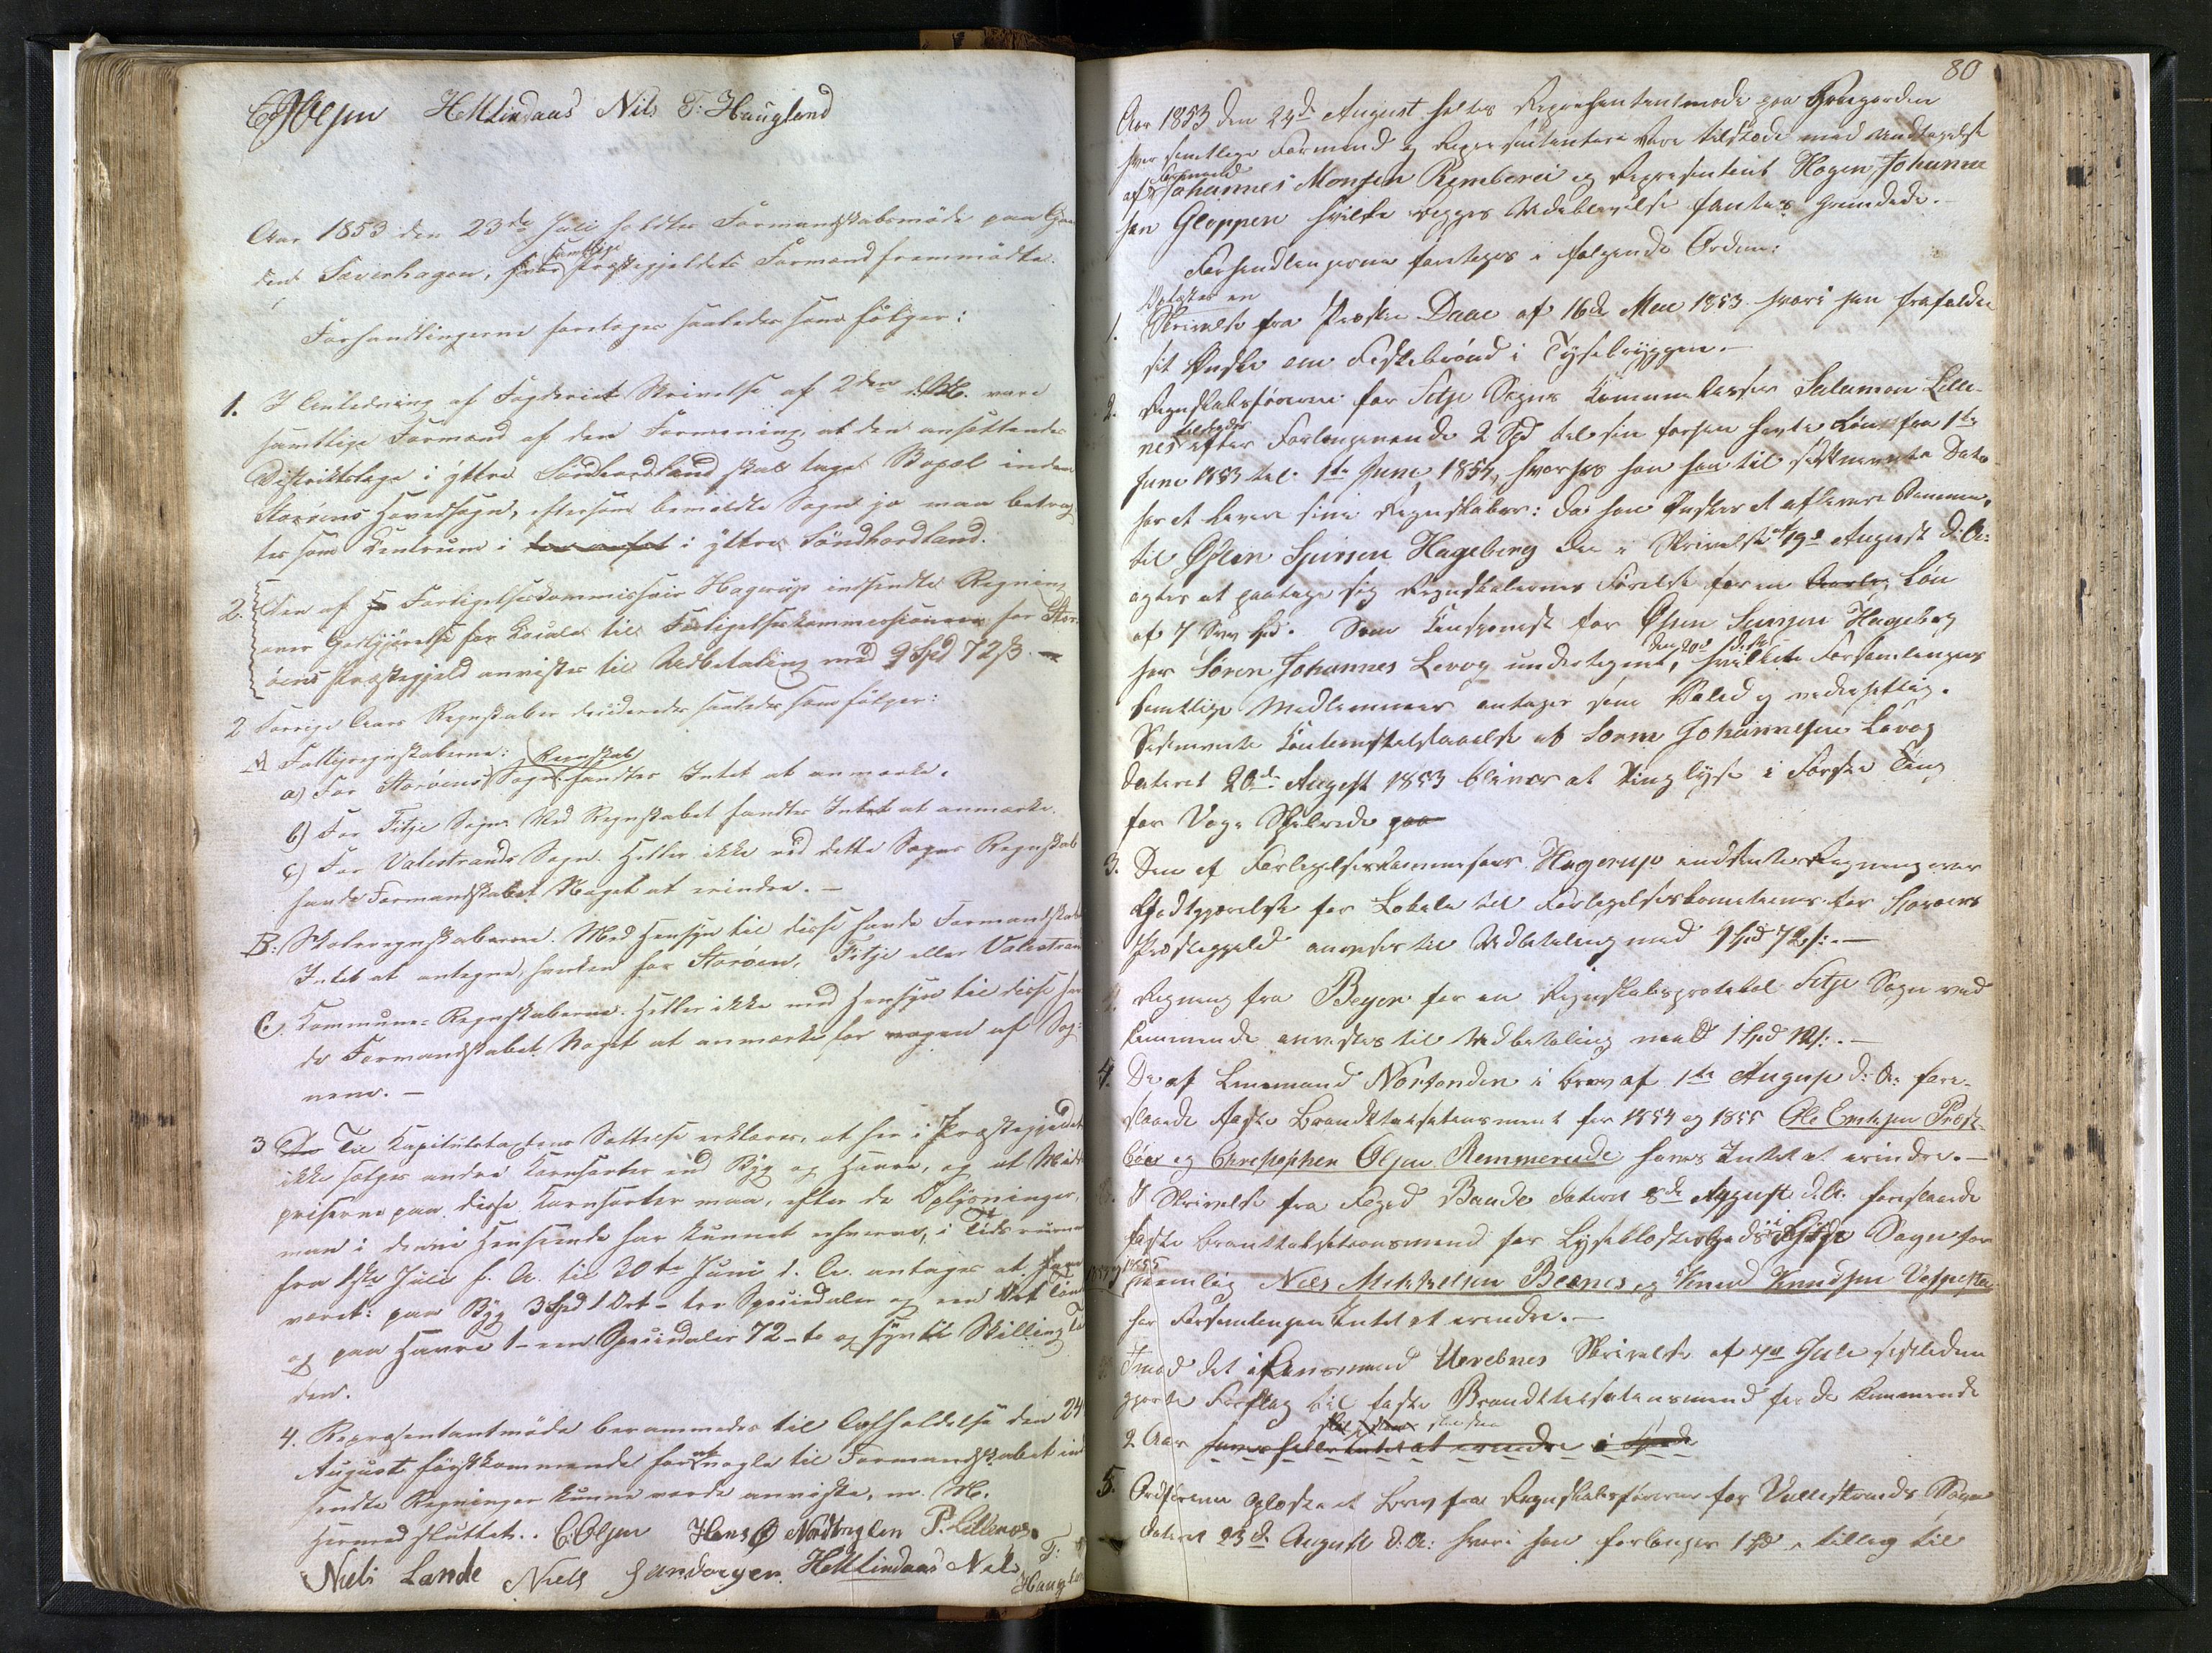 C. Olsen HMLindaas Nils T: Haugland
Aar 1853 den 23de Juli holdtes Formandskabsmöde paa Gaar
den Sævenhagen, hvor samtlige Præstegjeldets Formænd fremmödte.
Forhandlingerne foretoges saaledes som fölger:
1. I Anledning af Fogderiets Skrivelse af 2den d. M. vare
samtlige Formænd af den Formening, at den ansættende
Distriktslæge i yttre Söndhordland skal tage Bopæl inden
Storöens Hovedsogn, eftersom bemeldte Sogn jo maa betrag
tes som Centrum i i yttre Söndhordland.
2. Den af Forligelseskommissair Hagerup indsendte Regning
over Godtgjörelse for Locale til Forligelseskommissionen for Stor-
öens Præstegjeld anvistes til Udbetaling med 9 Spd 72 ß. —
2 Forrige Aars Regnskaber deciderede saaledes som fölger:
A Fattigregnskaberne:
a) For Storöens Sogns Regnskab fandtes Intet at anmærke.
b) For Fitje Sogn. Ved Regnskabet fandtes Intet at anmærke.
c) For Valestrands Sogn. Heller ikke ved dette Sogns Regnskab
havde Formandskabet Noget at erindre. —
B: Skoleregnskaberne. Med Hensyn til disse havde Formandskabet
Intet at antegne, hverken for Storöen, Fitje eller Valestrand
C. Kommune-Regnskaberne. Heller ikke med Hensyn til disse hav
de Formandskabet Noget at anmærke for nogen af Sog-
nene. —
3 Til Kapitelstaxtens Sættelse erklæres, at her i Præstegjeldet
ikke sælges andre Kornsorter end Byg og Havre, og at Middel
priserne paa disse Kornsorter maa, efter de Oplysninger,
man i denne Henseende har kunnet erhverve, i Tidsrummet
fra 1ste Juli f. A. til 30te Juni d. A. antages at have
været: paa Byg 3 Spd 1 Ort – tre Speciedaler og en Ort Tönden
og paa Havre 1 – een Speciedaler 72 – to og syvti Skilling Tön
den.
4. Repræsentantmöde berammedes til Afholdelse den 24
August förstkommende for at nogle til Formandskabet ind
sendte Regninger kunne vorde anviste, m. M.
Hermed sluttet. C. Olsen Hans Ø Nordbryglen P. Lillenæs
Niels Lande Niels Handorgen HMLindaas Nils T:
Haugland
80
Aar 1853 den 24de August holtes Representantmøde paa Prægarden
hver samtlige Formend og Representantere vare tilstede med undtagelse
af formand Johannes Monsen Rymberei og Representent Hogen Johanne
sen Gloppen hvilke begges Udeblivelse fantes grundede. —
Forhandlingerne foretoges i følgende Orden:
1. Oplæstes en Skrivelse fra Præste Daae af 16de Mai 1853 hvori han frafalder
sit Ønske om Fæstebrönd i Tysebryggen. —
2. Regnskabsføreren for Fitje Sogns Kommunekasse Salamon Lille-
nes efter Forlangende 2 Spd til sin forhen havte Løn fra 1te
Juni 1853 til 1te Juni 1854, hvorhos han har til sidstnevnte Dato
har at levere sine Regnskaber: da han ønsker at aflevere Samme
til Østen Sjursen Hageberg der i Skrivelse af 19de August d. A:
agter at paatage sig Regnskabernes Førelse for en Løn
af 7 Spd. Som Kausionist for Østen Sjursen Hageberg
har Søren Johannes Levog undertegnet, den 20de ds. hvilket Forsamlingens
samtlige Medlemmer antages som Solid og vederheftig.
Sidstnevnte Kautionstilstaaelse af Søren Johannesen Levog
dateret 20de August 1853 bliver at tinglyse i Første Ting
for Vogs Skibrede
3. Den af Forligelseskommissær Hagerup indsendte Regning over
Godtgjørelse for Lokale til Forligelseskomiteen for Storøens
Præstegjeld anvistes til Udbetaling med 9 Spd 72 s: —
4. Regning fra Beyer for en Regnskabsprotokol Fitje Sogn ved
kommende anvistes til Udbetaling med 1 Spd 12 s: —
4. De af Lensmand Nortenden i brev af 1te August d: A: fore-
slaaede faste Brandttaksationsmend for 1854 og 1855 Ole Eriksen Prest-
bøen og Christopher Olsen Remmerude haves Intet at erindre. —
I Skrivelse fra Foged Bande dateret 8de August d. A. foreslaaede
faste brandttaksationsmend for Lyseklosters Gods i Fitje Sogn for
1854 og 1855 nemlig Niels Mikkelsen Beenes og Knud Knudsen Vespestad
har Forsamlingen Intet at erindre. —
Imod det i Lensmand Urebnes Skrivelse af 7de Juli sidstleden
gjorte Forslag til faste Brandttaksationsmend for de kommende
2 Aar haves heller Intet at erindre i
5. Ordføreren oplæste et brev fra Regnskabsføreren for Vallestrands Sogn
dateret 23de August d. A: hvori han forlanger 1 Spd i tillæg til